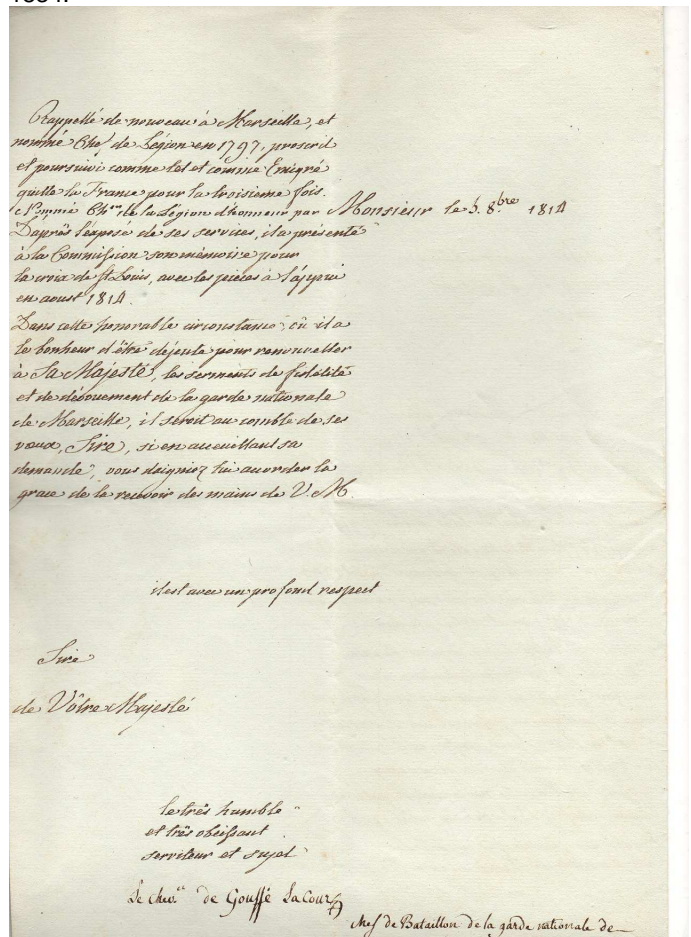 Rappellé de nouveau à Marseille, et
nommé Chef de Légion en 1797, proscrit
et poursuivi comme tel et comme Emigré
quitte la France pour la troisieme fois.
Nommé Ch.er de la Légion d'honneur par Monsieur le 5. 8.bre 1814
D'après l'éxposé de ses services, il a présenté
à la Commission son mémoire pour
la croix de St. Louis, avec les pieces à l'appui
en aoust 1814.
Dans cette honorable circonstance, où il a
le bonheur d'être députe pour renouveller
à Sa Majesté, les serments de fidélité
et de dévouement de la garde nationale
de Marseille, il seroit au comble de ses
vœux, Sire, si en accueillant sa
demande, vous daigniez lui accorder la
grace de la recevoir des mains de V. M.
il est avec un profond respect
Sire
de Vôtre Majesté
le très humble
et très obéissant
serviteur et sujet
Le chev.er de Gouffé Lacour
chef de Bataillon de la garde nationale de